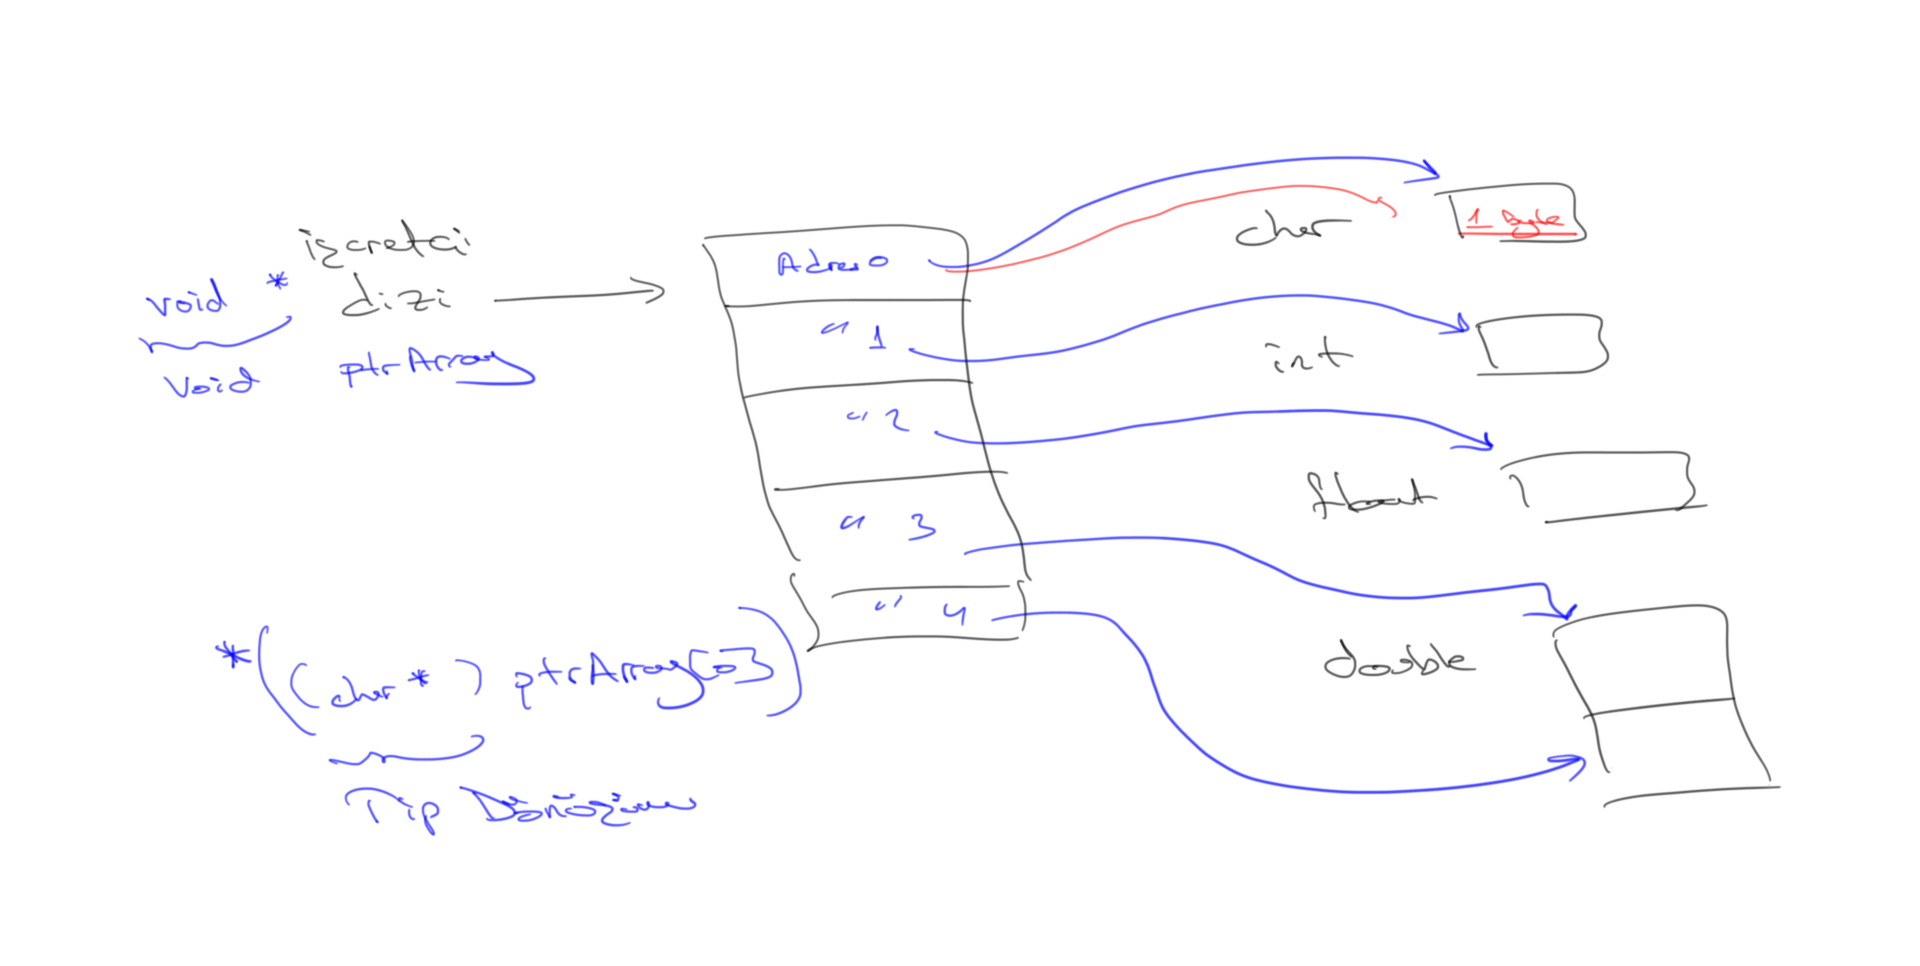 işaretçi
void * dizi
void ptrArray
Adres 0
" 1
" 2
" 3
" 4
char
1 Byte
int
float
double
*((char *) ptrArray[0])
Tip Dönüşüm